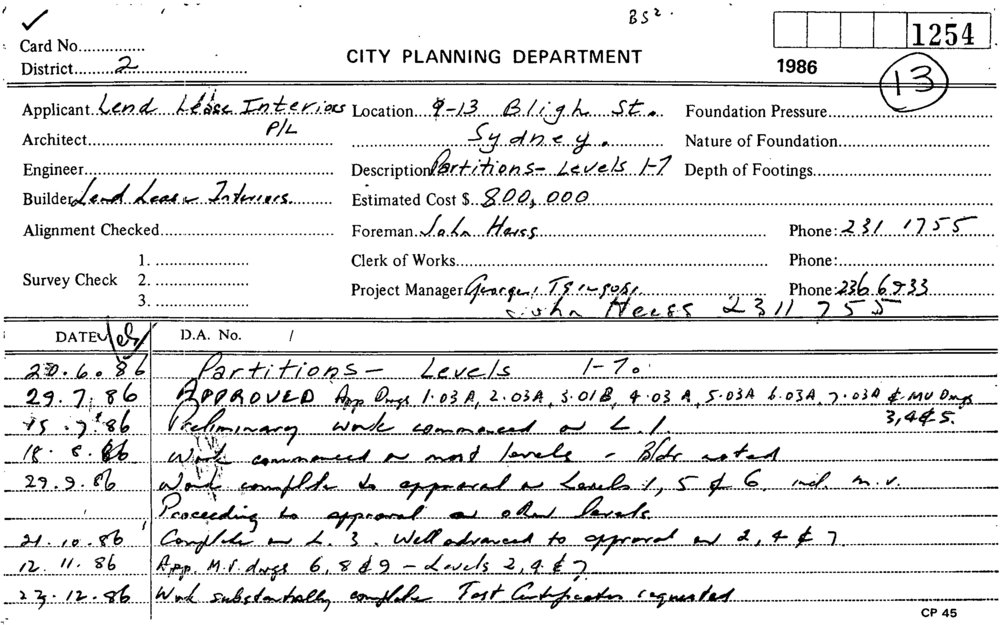 BS2.
1254
Card No...............
District........2............................
CITY PLANNING DEPARTMENT
1986
13
Applicant..Lend Lease Interiors P/L Location....9-13 Bligh St.. Foundation Pressure............................
Architect................................................ ....................Sydney.............. Nature of Foundation..........................
Engineer................................................ Description Partitions - Levels 1-7 Depth of Footings...............................
Builder Lend Lease Interiors. Estimated Cost $..800,000
Alignment Checked.................................. Foreman..John Heiss Phone: 231 1755
1. ...................... Clerk of Works............................ Phone:..........................
Survey Check 2. ......................
3. ...................... Project Manager George Phone: 236 6933
John Heiss 2311755
DATE D.A. No. /
20.6.86 Partitions - Levels 1-7.
29.7.86 APPROVED App Dwgs 1.03A, 2.03A, 3.01B, 4.03A, 5.03A 6.03A, 7.03A & MV Dwgs 3,4&5.
15.7.86 Preliminary work commenced on L.1.
18.8.86 Work commenced on most levels - Bldr noted
29.9.86 Work complete to approval on Levels 1, 5 & 6. incl. m.v.
Proceeding to approval on other levels.
21.10.86 Complete on L. 3. Well advanced to approval on 2, 4 & 7
12.11.86 App. M.V. dwgs 6, 8 & 9 - Levels 2, 4 & 7
23.12.86 Work substantially complete Test Certificates requested
CP 45